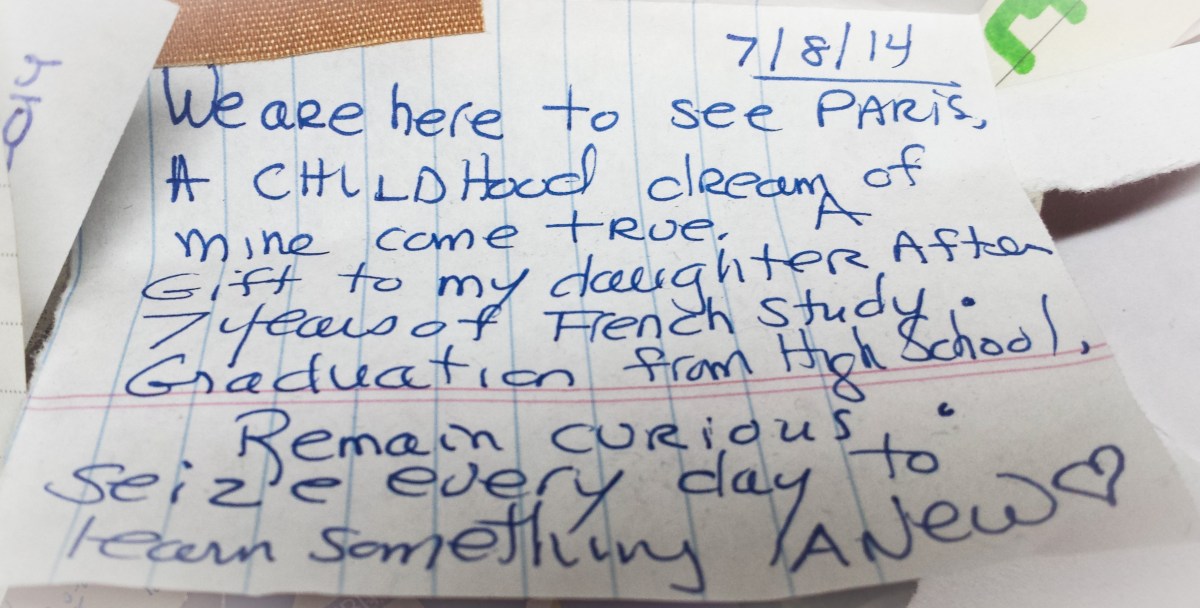 7/8/14
We are here to see PARis,
A CHILDHood dream of
mine come tRue. A
Gift to my daughter, After
7 years of French study.
Graduation from High School.
Remain cuRious.
Seize every day to
learn something ANew ♡
014